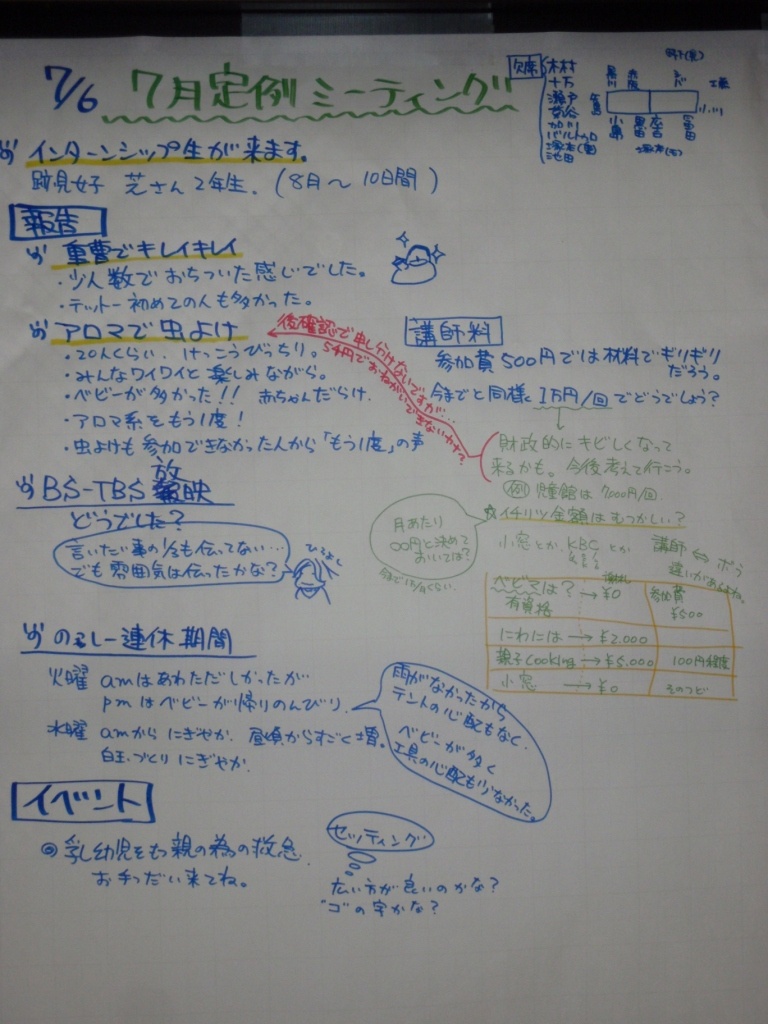 7/6 7月定例ミーティング
欠席
木村
十万
瀬戸
菅谷
加川
池田
インターンシップ生が来ます。
跡見女子 芝さん2年生. (8月〜10日間)
報告
重曹でキレイキレイ
・少人数でおちついた感じでした。
・テットー初めての人も多かった。
アロマで虫よけ
・20人くらい. けっこうぴっちり。
・みんなワイワイと楽しみながら。
・ベビーが多かった!! 赤ちゃんだらけ.
・アロマ系をもう1度!
・虫よけも参加できなかった人から「もう1度」の声
後確認で申し分けないですが…
5千円でおねがいできないかな?
講師料
参加費500円では材料でギリギリ
だろう。
今までと同様に1万円/回でどうでしょう?
財政的にキビしくなって
来るかも。今後考えて行こう。
例 児童館は7000円/回
月あたり
○○円と決めて
おいては?
☆イチリツ金額はむつかしい?
小窓とか. KBCとか
講師 ⇔ ボラ
違いがあるよね。
謝礼
参加費
ベビマは? → ¥0 ¥500
有資格
にわには → ¥2.000
親子cooking → ¥5.000 100円程度
小窓 → ¥0 そのつど
BS-TBS 放映
どうでした?
言いたい事の1/3も伝ってない…
でも雰囲気は伝ったかな?
ひろよし
のざしー連休期間
火曜 amはあわただしかったが
pmはベビーが帰りのんびり.
水曜 amからにぎやか. 昼頃からすごく増。
白玉づくりにぎやか.
雨がなかったから
テントの心配もなく.
ベビーが多く
工具の心配も少なかった。
イベント
◎乳幼児をもつ親の為の救急.
お手つだい来てね。
セッティング
広い方が良いのかな?
"コ"の字かな?